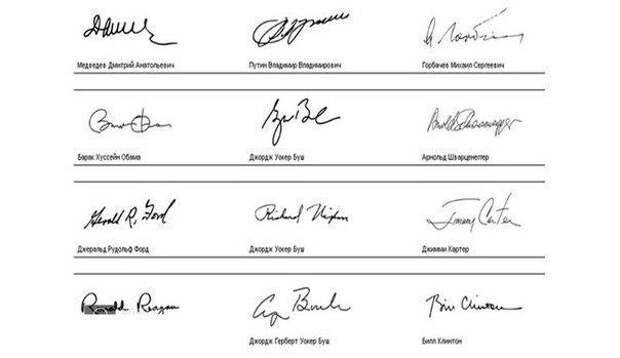 Медведев Дмитрий Анатольевич
Путин Владимир Владимирович
Горбачев Михаил Сергеевич
Барак Хуссейн Обама
George Bush
Джордж Уокер Буш
Arnold Schwarzenegger
Арнольд Шварценеггер
Gerald R. Ford
Джеральд Рудольф Форд
Richard Nixon
Джордж Уокер Буш
Jimmy Carter
Джимми Картер
Ronald Reagan
Джордж Герберт Уокер Буш
Bill Clinton
Билл Клинтон